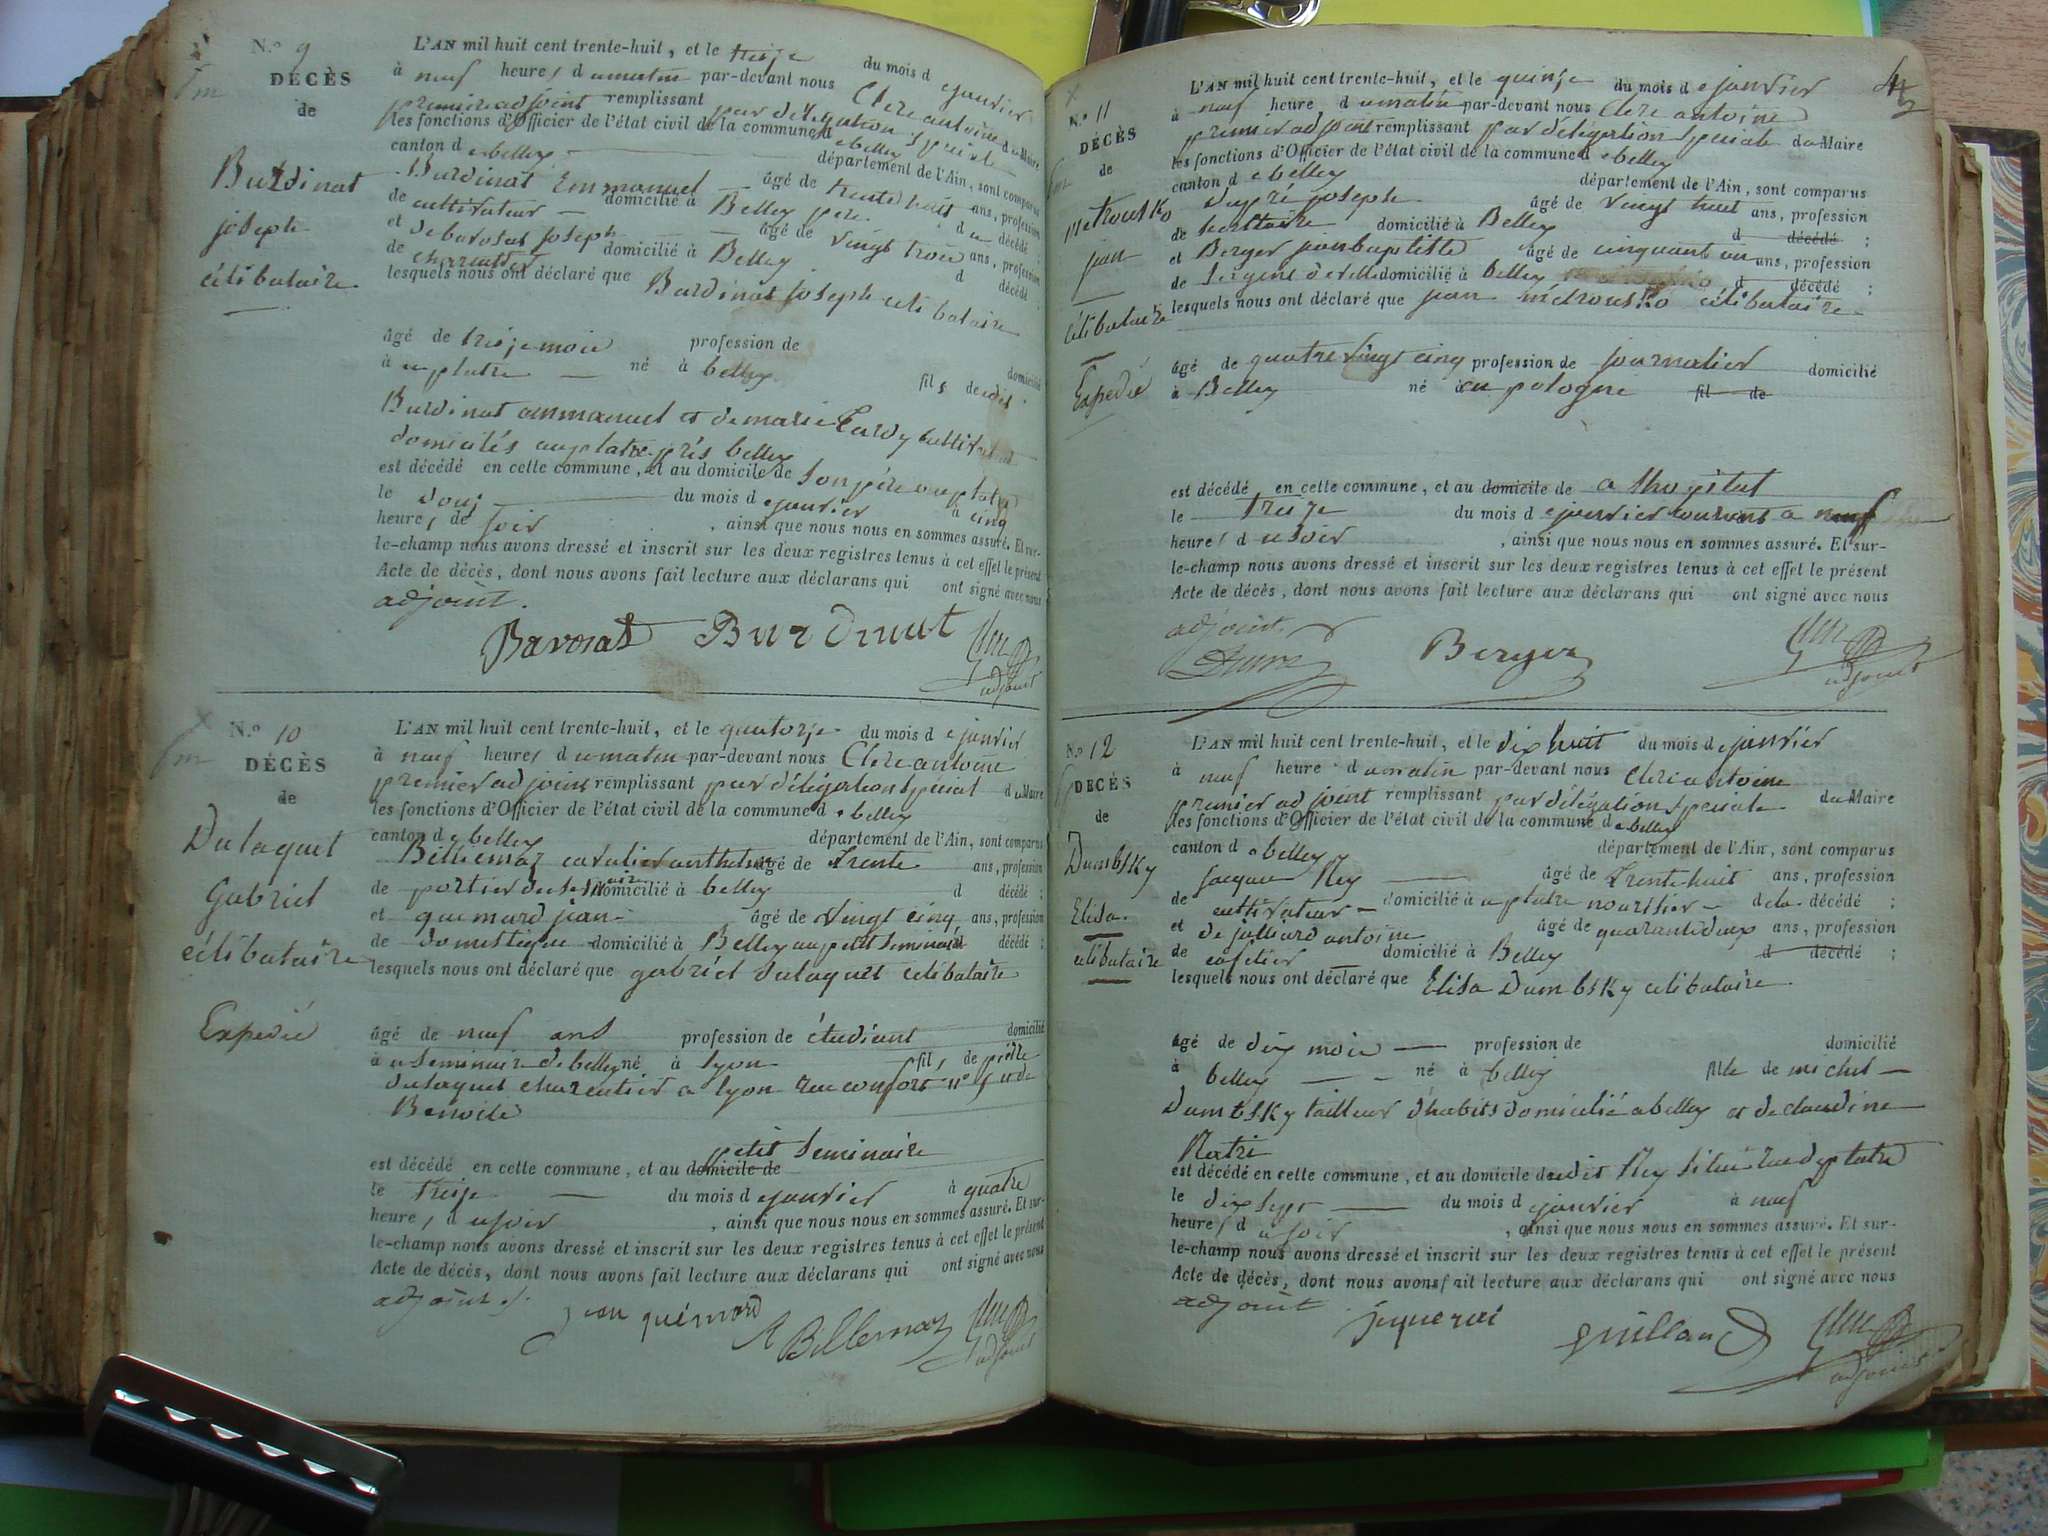 N.º 9
DÉCÈS
de
Burdinat
joseph
célibataire
L'AN mil huit cent trente-huit, et le treize du mois d e janvier
à neuf heures d u matin par-devant nous Clerc antoine
premier adjoint remplissant par délégation spéciale du Maire
les fonctions d'Officier de l'état civil de la commune d e belley
canton d e belley département de l'Ain, sont comparus
Burdinat Emmanuel âgé de trente huit ans, profession
de cultivateur domicilié à Belley père d u décédé ;
et de bavosat joseph âgé de vingt trois ans, profession
de charcutier domicilié à Belley d décédé
lesquels nous ont déclaré que Burdinat joseph celibataire
âgé de treize mois profession de domicilié
à au platre né à belley fils de udit
Burdinat ammanuel et de marie Cardy cultivat
domiciliés au platre près belley
est décédé en cette commune, et au domicile de son père au platre
le douz du mois d e janvier à cinq
heures de soir , ainsi que nous nous en sommes assuré. Et sur-
le-champ nous avons dressé et inscrit sur les deux registres tenus à cet effet le présent
Acte de décès, dont nous avons fait lecture aux déclarans qui ont signé avec nous
adjoint.
Bavosat Burdinat
adjoint
N.º 10
DÉCÈS
de
Dulaquet
Gabriel
célibataire
Expedié
L'AN mil huit cent trente-huit, et le quatorze du mois d e janvier
à neuf heures d u matin par-devant nous Clerc antoine
premier adjoint remplissant par délégation special du Maire
les fonctions d'Officier de l'état civil de la commune d e belley
canton d e belley département de l'Ain, sont comparus
Billiemaz cavalier anthelme âgé de trente ans, profession
de portier du seminaire domicilié à belley d décédé ;
et quemard jean âgé de vingt cinq ans, profession
de domestique domicilié à Belley au petit seminaire décédé ;
lesquels nous ont déclaré que gabriel dulaquet celibataire
âgé de neuf ans profession de étudiant domicilié
à u seminair de belley né à lyon fils de piere
dulaquet charcutier a lyon rue confort nº 5 et de
Benoite
petit seminaire
est décédé en cette commune, et au domicile de
le treize du mois d e janvier à quatre
heures d u soir , ainsi que nous nous en sommes assuré. Et sur-
le-champ nous avons dressé et inscrit sur les deux registres tenus à cet effet le présent
Acte de décès, dont nous avons fait lecture aux déclarans qui ont signé avec nous
adjoint
jean quémard A Billemaz
adjoint
N.º 11
DÉCÈS
de
Metrousko
jean
célibataire
Expedié
L'AN mil huit cent trente-huit, et le quinze du mois d e janvier
à neuf heure d u matin par-devant nous Clerc antoine
premier adjoint remplissant par délégation speciale du Maire
les fonctions d'Officier de l'état civil de la commune d e belley
canton d e belley département de l'Ain, sont comparus
dupré joseph âgé de vingt huit ans, profession
de secrétaire domicilié à Belley d décédé ;
et Berger jean baptiste âgé de cinquant un ans, profession
de sergent de ville domicilié à belley d décédé ;
lesquels nous ont déclaré que jean métrousko célibataire
âgé de quatre vingt cinq profession de journalier domicilié
à Belley né à en pologne fil de
est décédé en cette commune, et au domicile de a lhopital
le treize du mois d e janvier courant a neuf
heures d u soir , ainsi que nous nous en sommes assuré. Et sur-
le-champ nous avons dressé et inscrit sur les deux registres tenus à cet effet le présent
Acte de décès, dont nous avons fait lecture aux déclarans qui ont signé avec nous
adjoint.
Berger
adjoint
N.º 12
DÉCÈS
de
Dumbsky
Elisa
célibataire
L'AN mil huit cent trente-huit, et le dix huit du mois d e janvier
à neuf heure d u matin par-devant nous Clerc antoine
premier adjoint remplissant par délégation speciale du Maire
les fonctions d'Officier de l'état civil de la commune d e belley
canton d e belley département de l'Ain, sont comparus
jacque Rey âgé de trente huit ans, profession
de cultivateur domicilié à u platre nourisier d e la décédé ;
et de juilliard antoine âgé de quarante deux ans, profession
de cafetier domicilié à Belley d décédé ;
lesquels nous ont déclaré que Elisa Dumbsky celibataire
âgé de dix mois profession de domicilié
à belley né à belley fille de michel
Dumbsky tailleur d'habits domicilié a belley et de claudine
est décédé en cette commune, et au domicile dudit Rey situé rue du platre
le dix sept du mois d e janvier à neuf
heures d u soir , ainsi que nous nous en sommes assuré. Et sur-
le-champ nous avons dressé et inscrit sur les deux registres tenus à cet effet le présent
Acte de décès, dont nous avons fait lecture aux déclarans qui ont signé avec nous
adjoint
adjoint